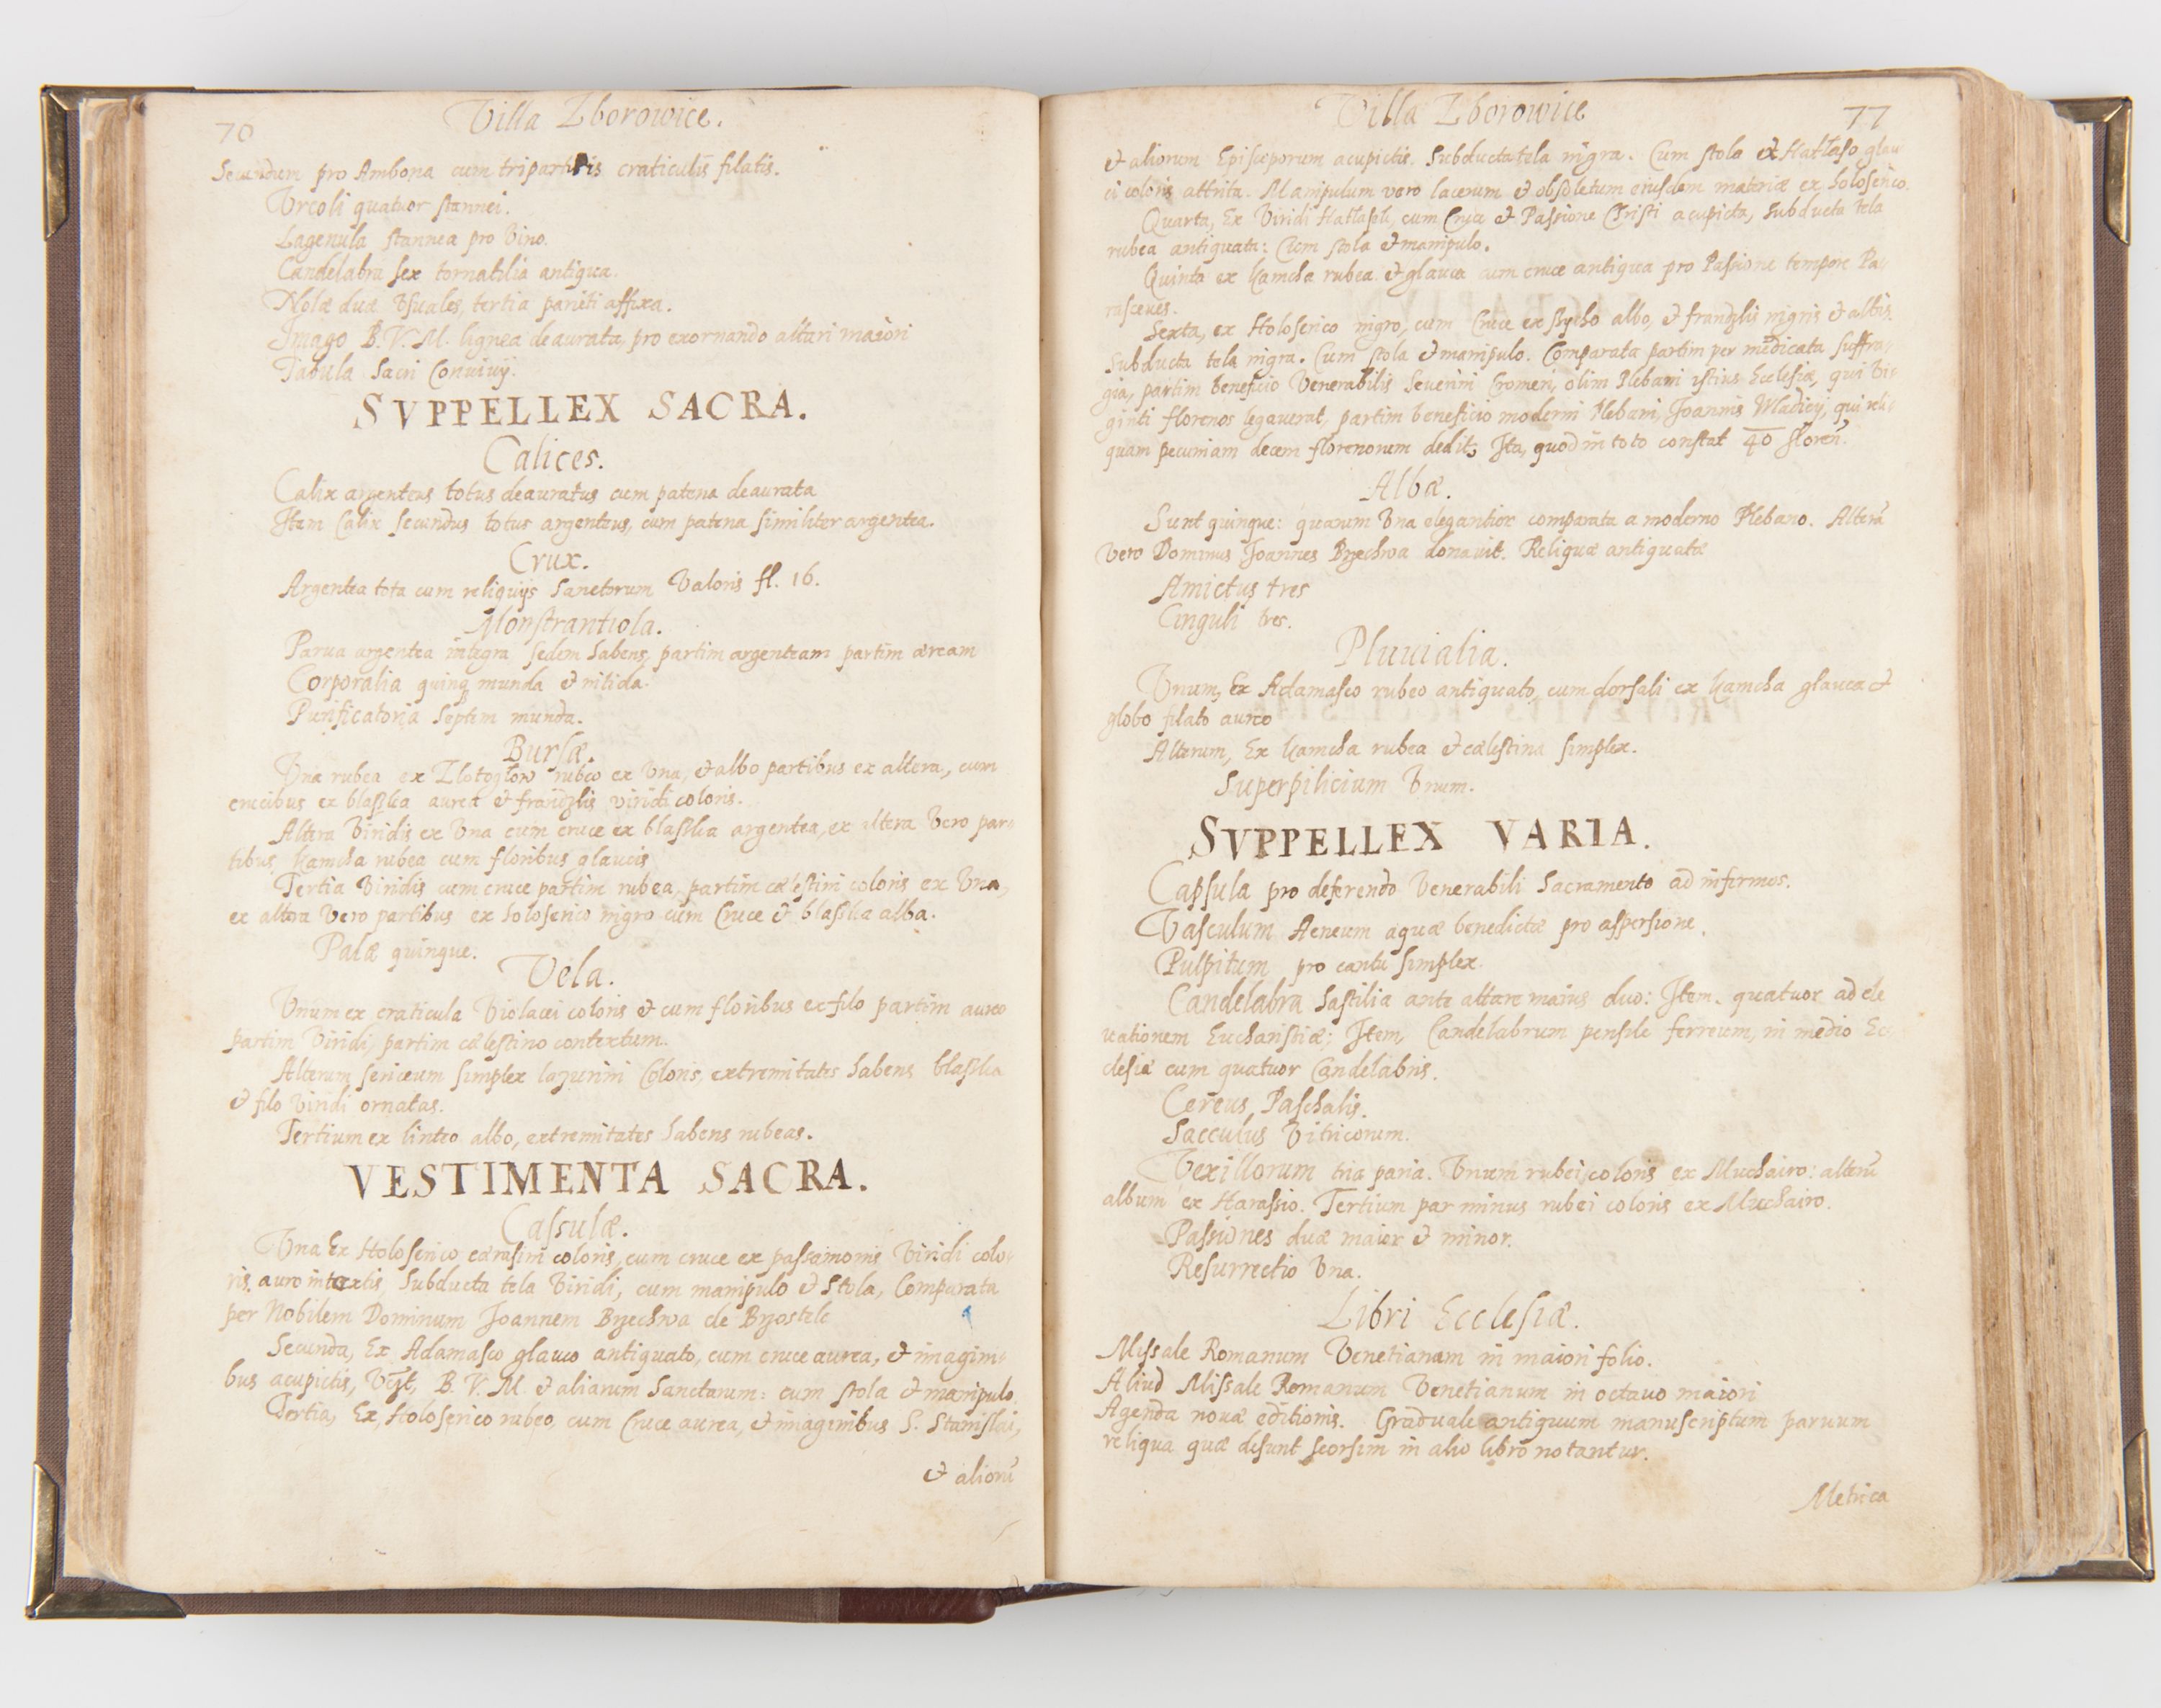 70
Villa Zborowice.
Secundum pro Ambona cum tripartitis craticulis filatis.
Vrceoli quatuor stannei.
Lagenula stannea pro Vino.
Candelabra sex tornatilia antiqua.
Nolæ duæ Vsuales, tertia parieti affixa.
Imago B. V. M. lignea deaurata, pro exornando altari maiori
Tabula Sacri Conuiuij.
SVPPELLEX SACRA.
Calices.
Calix argenteus totus deauratus cum patena deaurata
Item Calix secundus totus argenteus, cum patena similiter argentea.
Crux.
Argentea tota cum reliquijs Sanctorum Valoris fl. 16.
Monstrantiola.
Parua argentea integra sedem habens, partim argenteam partim æream
Corporalia quinq munda & nitida.
Purificatoria Septem munda.
Bursæ.
Vna rubea ex Zlotoglow rubeo ex Vna, & albo partibus ex altera, cum
crucibus ex blaszka aurea & frandzlis viridi coloris.
Altera Viridis ex Vna cum cruce ex blaszka argentea, ex altera Vero par
tibus, Kamcha rubea cum floribus glaucis
Tertia Viridis cum cruce partim rubea, partim cælestini coloris ex Vna,
ex altera Vero partibus ex holoserico nigro cum Cruce & blaszka alba.
Palæ quinque.
Vela.
Vnum ex craticula Violacei coloris & cum floribus ex filo partim aureo
partim Viridi, partim cælestino contextum.
Alterum sericeum simplex lazurini Coloris, extremitates habens blaszka
& filo Viridi ornatas.
Tertium ex linteo albo, extremitates habens rubeas.
VESTIMENTA SACRA.
Casulæ.
Vna Ex Holoserico carasini coloris, cum cruce ex passamonis Viridi colo
ris, auro intextis, Subducta tela Viridi, cum manipulo & Stola, Comparata
per Nobilem Dominum Joannem Brzechwa de Brzostek
Secunda, Ex Adamasco glauco antiquato, cum cruce aurea, & imagini
bus acupictis, B. V. M. & aliarum Sanctarum: cum stola & manipulo.
Tertia, Ex Holoserico rubeo, cum Cruce aurea, & imaginibus S. Stanislai,
& alioru
Villa Zborowice
77
& aliorum Episcoporum acupictis. Subducta tela nigra. Cum stola ex Hatlaso glau
ci coloris attrita. Manipulum vero lacerum & obsoletum eiusdem materiæ ex holoserico.
Quarta, Ex Viridi Hatlaso, cum Cruce & Passione Christi acupicta, Subducta tela
rubea antiquata: Cum stola & manipulo.
Quinta ex Kamcha rubea & glauca cum cruce antiqua pro Passione tempore Pa
rasceues.
Sexta, ex Holoserico nigro, cum Cruce ex szycho albo, & frandzlis nigris & albis.
Subducta tela nigra. Cum stola & manipulo. Comparata partim per medicata suffra
gia, partim beneficio Venerabilis Seuerini Cromeri, olim Plebani istius Ecclesiæ, qui Vi
ginti florenos legauerat, partim beneficio moderni Plebani, Joannis Wladicij, qui reli
quam pecuniam decem florenorum dedit, Ita, quod in toto constat 40 floren.
Albæ.
Sunt quinque: quarum Vna elegantior comparata a moderno Plebano. Altera
Vero Dominus Joannes Brzechwa donauit. Reliquæ antiquatæ
Amictus tres
Cinguli tres.
Pluuialia.
Vnum, Ex Adamasco rubeo antiquato, cum dorsali ex Kamcha glauca &
globo filato aureo
Alterum, Ex Kamcha rubea & cælestina simplex.
Superpilicium Vnum.
SVPPELLEX VARIA.
Capsula pro deferendo Venerabili Sacramento ad infirmos.
Vasculum Aeneum aquæ benedictæ pro aspersione.
Pulpitum pro cantu simplex.
Candelabra hastilia ante altare maius duo: Item, quatuor ad ele
uationem Eucharistiæ: Item, Candelabrum pensile ferreum, in medio Ec
clesiæ cum quatuor Candelabris.
Cereus Paschalis.
Sacculus Vitricorum.
Vexillorum tria paria. Vnum rubei coloris ex Muchairo: alteru
album ex Harassio. Tertium par minus rubei coloris ex Muchairo.
Passiones duæ maior & minor.
Resurrectio Vna.
Libri Ecclesiæ.
Missale Romanum Venetianum in maiori folio.
Aliud Missale Romanum Venetianum in octauo maiori
Agenda nouæ editionis. Graduale antiquum manuscriptum paruum
reliqua quæ desunt seorsim in alio libro notantur.
Metrica